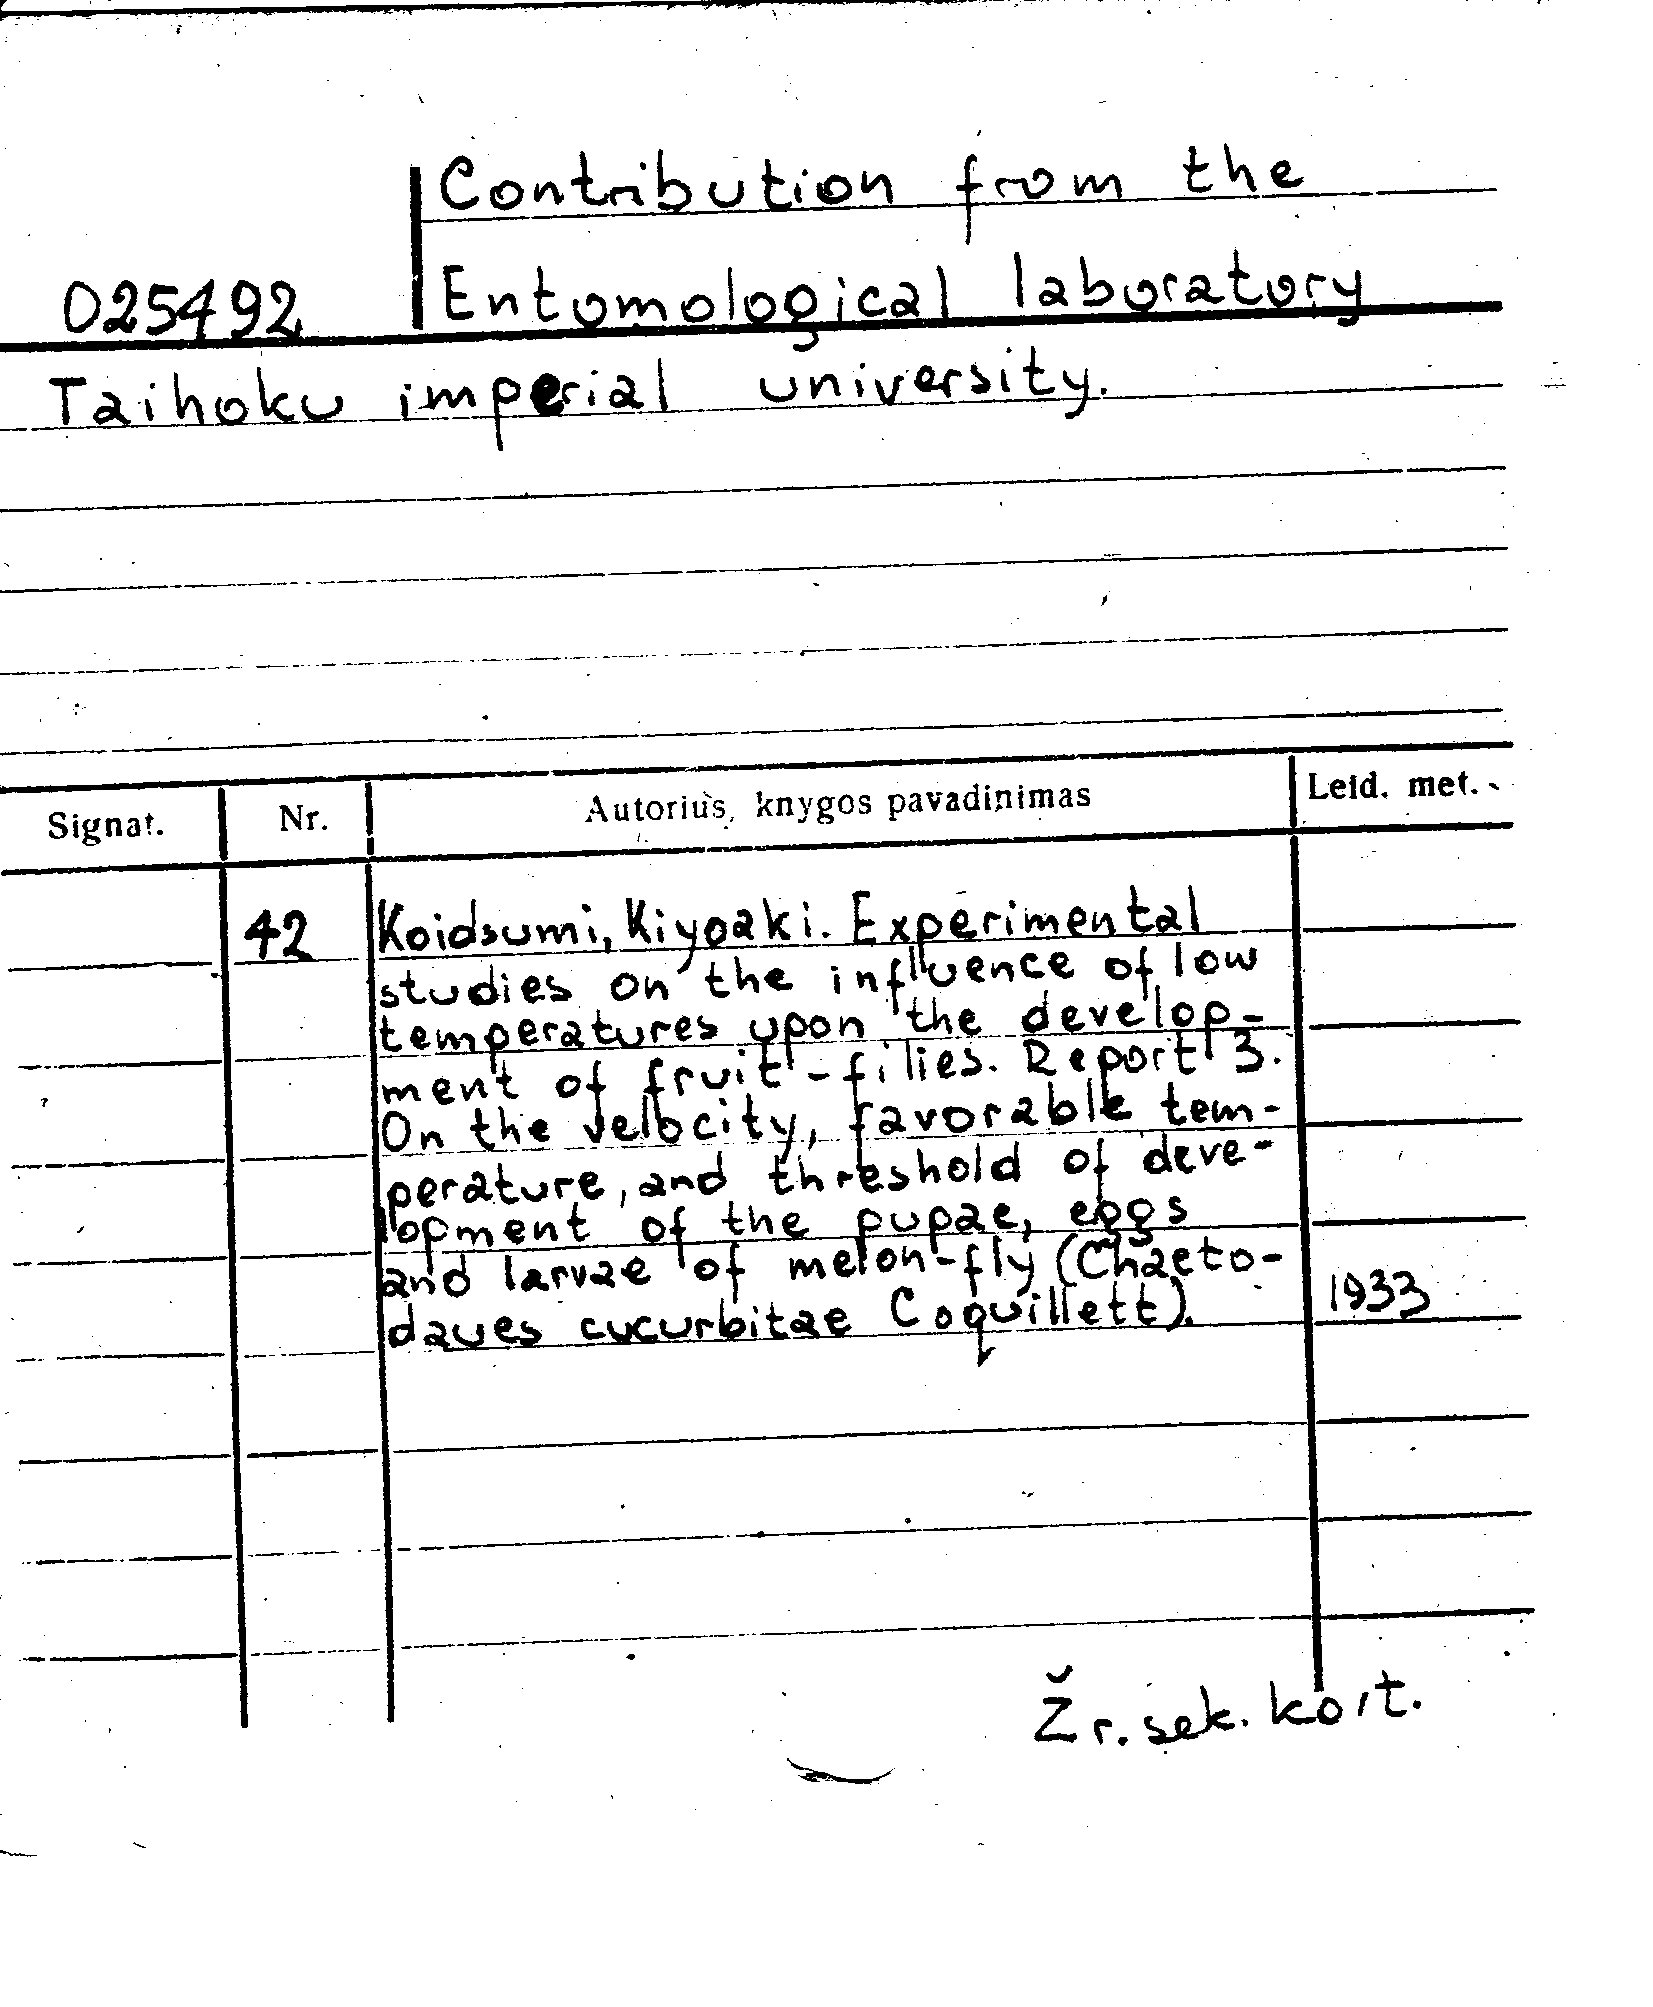 Contribution from the
025492 Entomological laboratory
Taihoku imperial university.
Signat. Nr. Autorius, knygos pavadinimas Leid. met.
42 Koidsumi, Kiyoaki. Experimental
studies on the influence of low
temperatures upon the develop-
ment of fruit-filies. Report 3.
On the velocity, favorable tem-
perature, and threshold of deve-
lopment of the pupae, eggs
and larvae of melon-fly (Chaeto-
daues cucurbitae Coquillett). 1933
Žr. sek. kort.